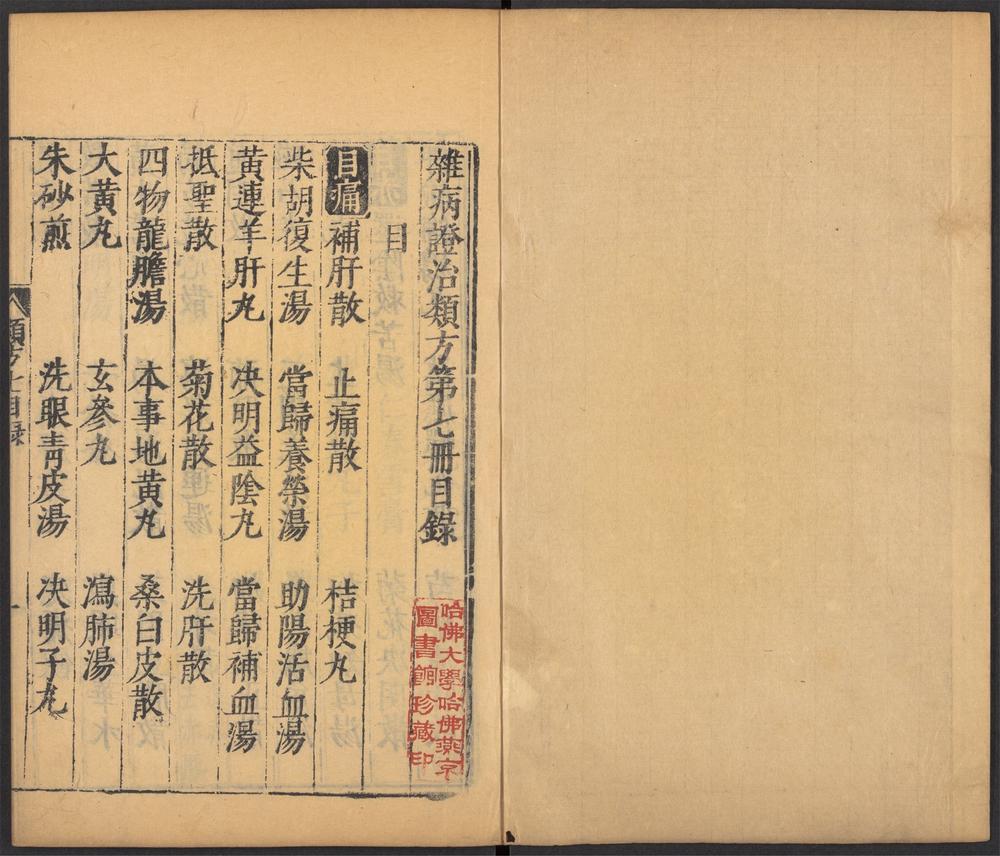 雜病證治類方第七冊目錄
目
目痛 補肝散 止痛散 桔梗丸
柴胡復生湯 當歸養榮湯 助陽活血湯
黃連羊肝丸 决明益陰丸 當歸補血湯
抵聖散 菊花散 洗肝散
四物龍膽湯 本事地黃丸 桑白皮散
大黃丸 玄參丸 瀉肺湯
朱砂煎 洗眼青皮湯 决明子丸
類方七目錄 一
哈佛大學哈佛燕京
圖書館珍藏印